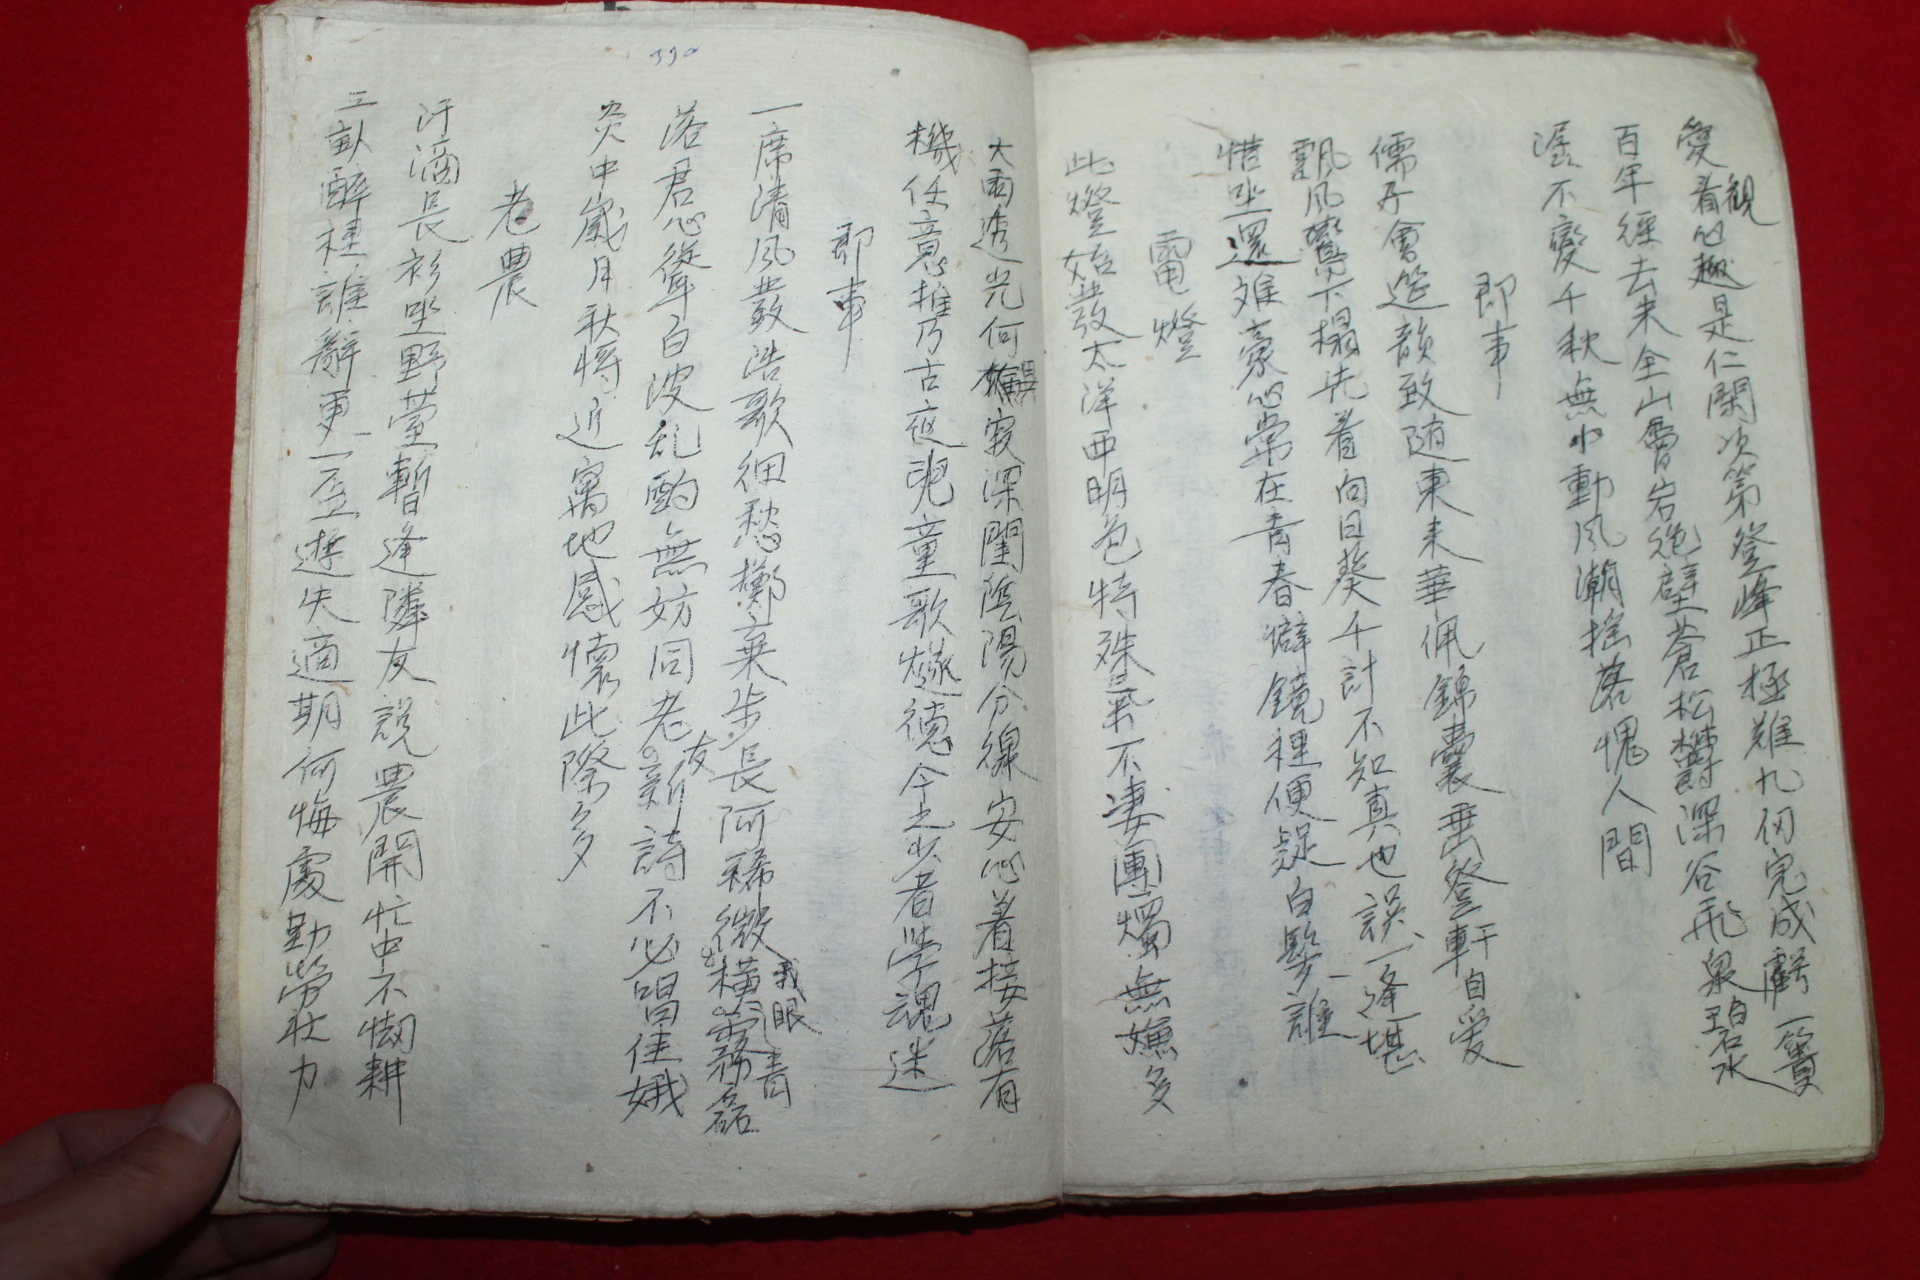 愛看心趣是仁関次第登峰正極難九仞完成虧一簣
觀
百年經去来全山層岩絶壁蒼松欝深谷飛泉碧水
潺不變千秋無小動風潮搖落愧人間
即事
儒子會筵韻致随東来華佩錦囊垂登軒自愛
飄風鬓下榻先看向日葵千計不知真也誤一逢堪
惜坐還难豪心常在青春僻鏡裡便疑白髮誰
電燈
此燈始發太洋西明色特殊氣不凄團燭無嫌多
大雨透光何寂深閨陰陽分線安心着接落有
機任意推乃古夜兒童歌德今之少者学魂迷
即事
一席清風数浩歌細愁擲棄步長阿稀微横霧磊
我眼青
落君心聳白波乱酌無妨同老新詩不必唱佳娥
友
炎中歲月秋将近寓地感懷此際多
老農
汗滴長衫坐野堂暫逢隣友説農閒忙中不惻耕
三畝醉種誰辭更一豆遊失適期何悔處勤労壯力